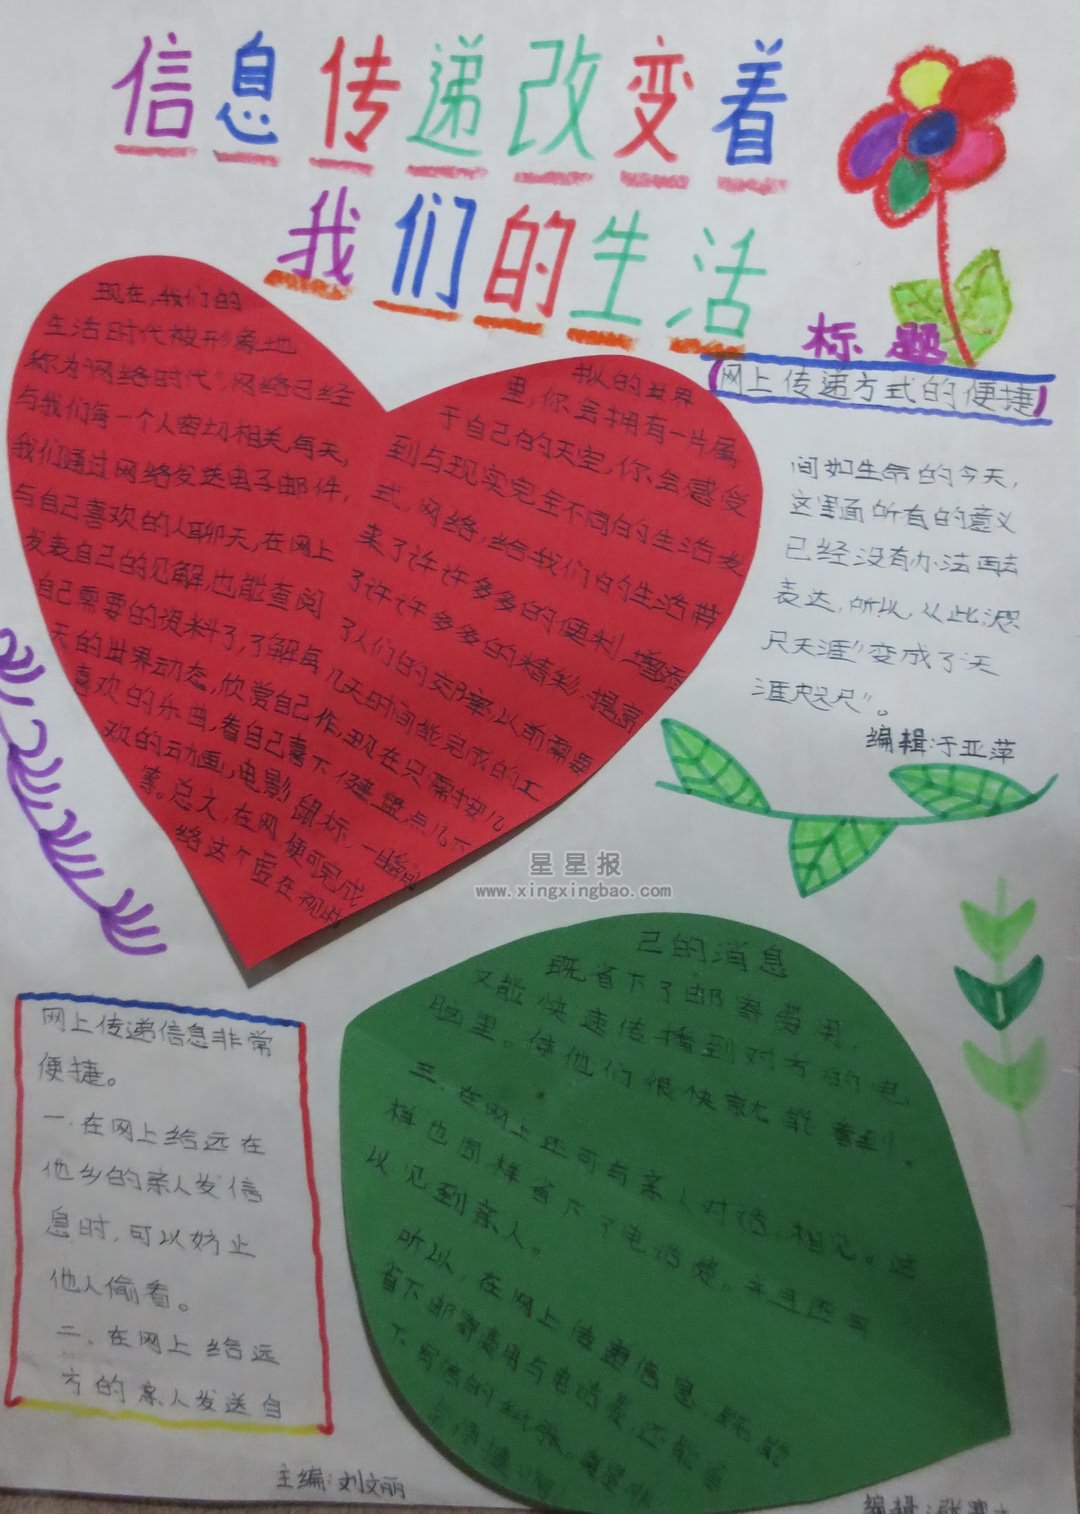 信息传递改变着
我们的生活
标题
网上传递方式的便捷
现在,我们的
生活时代被形象地
称为“网络时代”,网络已经
与我们每一个人密切相关,每天,
我们通过网络发送电子邮件,
与自己喜欢的人聊天,在网上
发表自己的见解,也能查阅
自己需要的资料了,了解每
天的世界动态,欣赏自己
喜欢的乐曲,看自己喜
欢的动画,电影
等。总之,在网
络这个
拟的世界
里,你会拥有一片属
于自己的天空,你会感受
到与现实完全不同的生活方
式,网络,给我们的生活带
来了许许多多的便利,增添
了许许多多的精彩,提高
了人们的效率,以前需要
几天时间能完成的工
作,现在只需按几
下键盘,点几下
鼠标,一瞬间
便可完成
间如生命的今天,
这里面所有的意义
已经没有办法再去
表达,所以,从此“咫
尺天涯”变成了“天
涯咫尺”。
编辑:于亚萍
星星报
www.xingxingbao.com
网上传递信息非常
便捷。
一.在网上给远在
他乡的亲人发信
息时,可以妨止
他人偷看。
二、在网上给远
方的亲人发送自
己的消息
既省下了邮寄费用,
又能快速传播到对方的电
脑里。使他们很快就能看到。
三.在网上还可与亲人对话,相见。这
样也同样省下了电话费。并且还可
以见到亲人。
所以,在网上传递信息,既能
省下邮寄费用与电话费,还能省
下写信的纸张,真是非
常便捷
主编:刘文丽
编辑:张